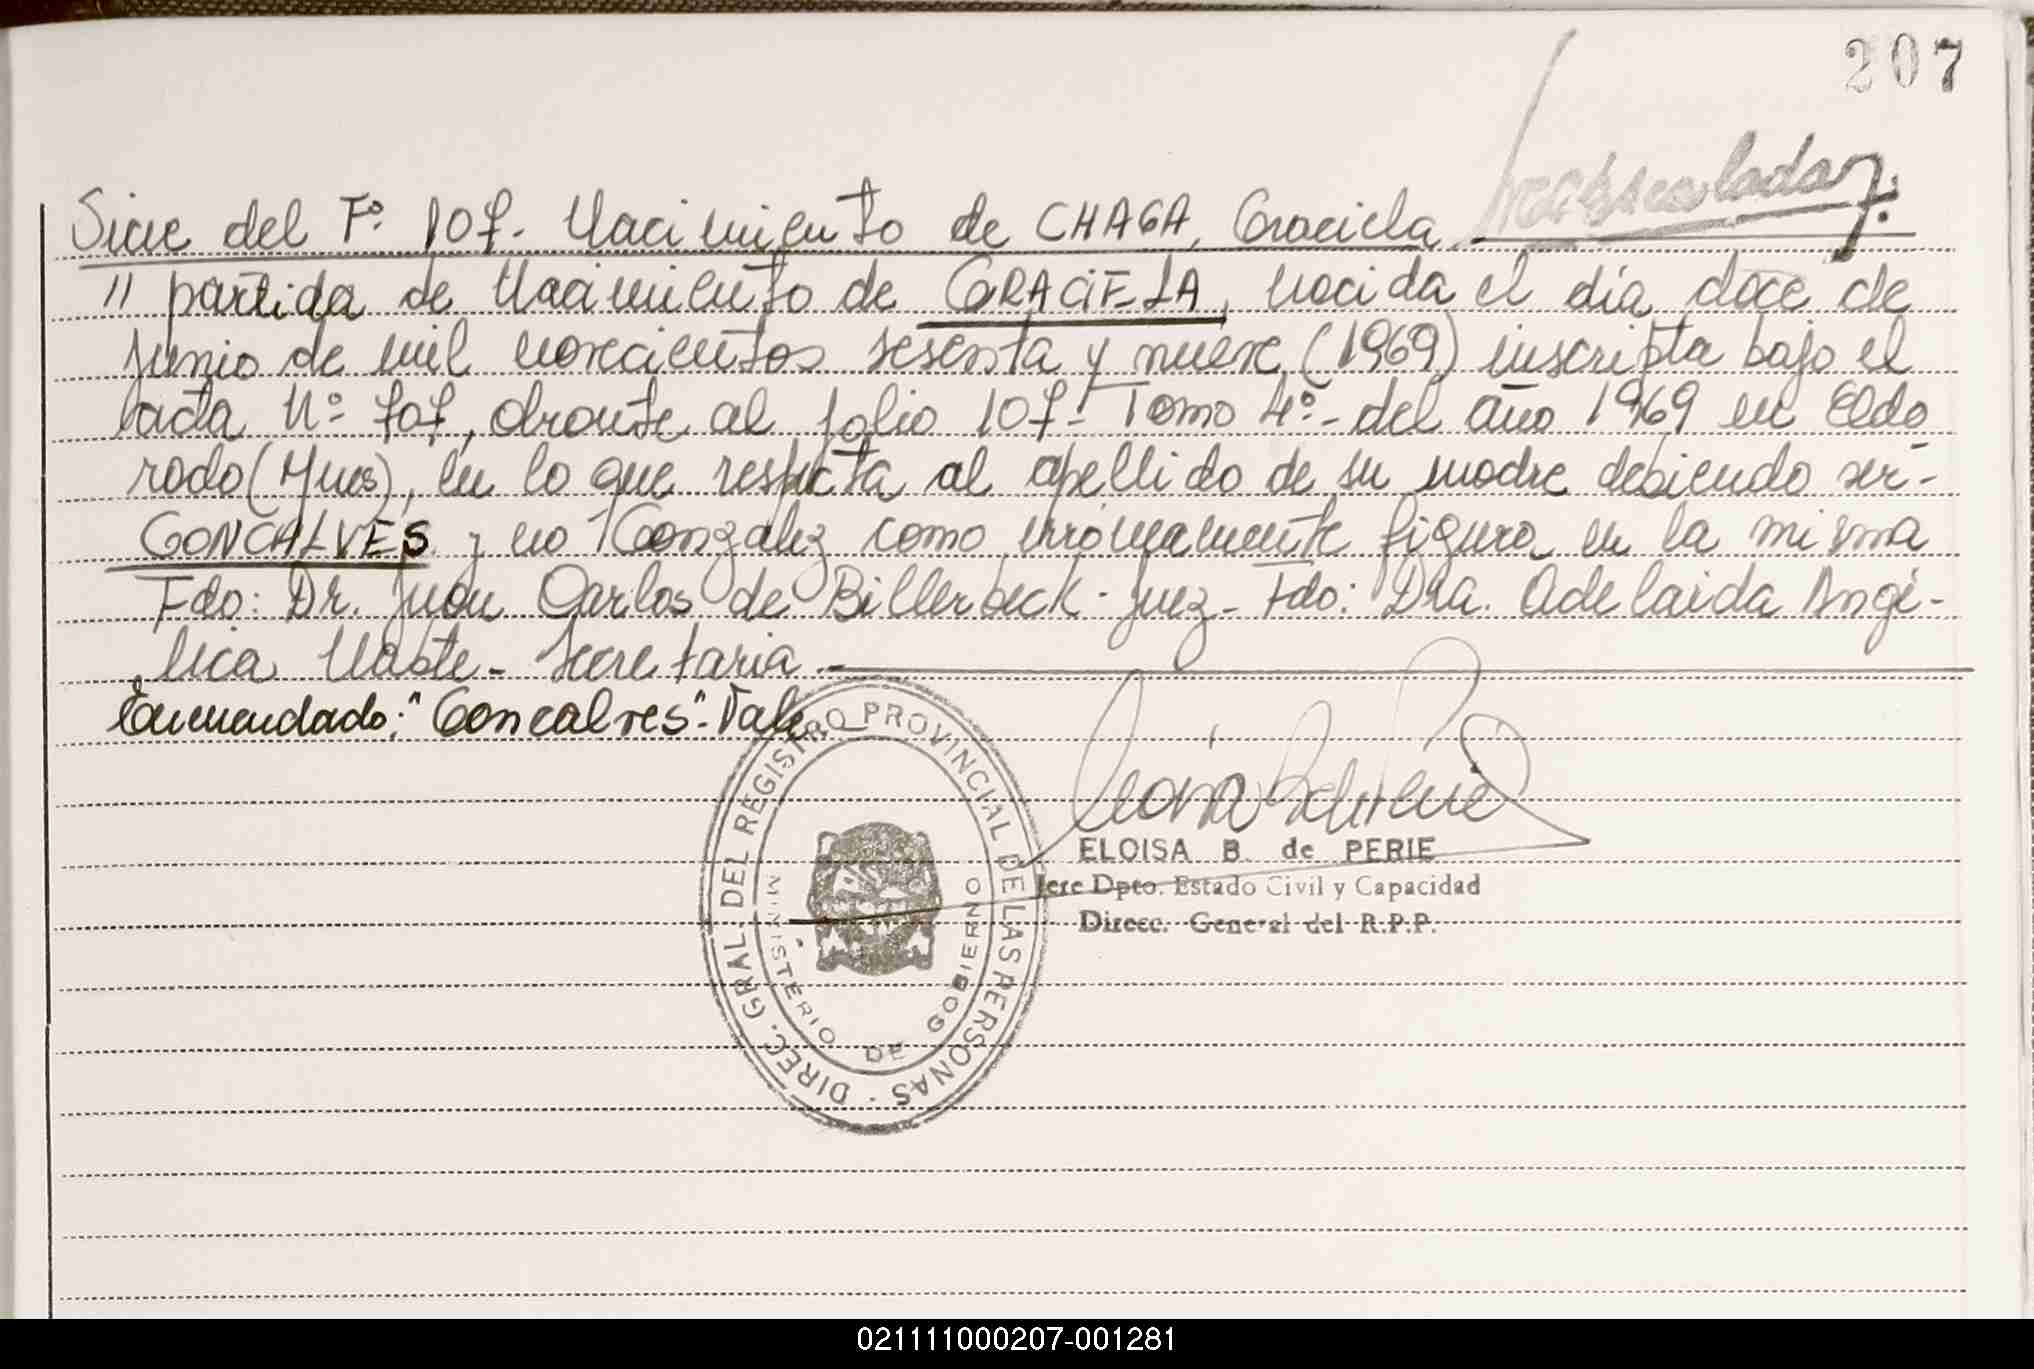 207
Sigue del Fº 107. Nacimiento de CHAGA, Graciela
" partida de Nacimiento de GRACIELA, nacida el día doce de
junio de mil novecientos sesenta y nueve (1969) inscripta bajo el
acta Nº 707, obrante al folio 107- Tomo 4º- del año 1969 en Eldo
rado (Mnes), en lo que respecta al apellido de su madre debiendo ser-
GONCALVES y no Gonzalez como erróneamente figura en la misma
Fdo: Dr. Juan Carlos de Billerbeck- Juez- Fdo: Dra. Adelaida Angé-
lica Uaste- Secretaria.-
Enmendado: "Goncalves"- Vale
DIREC. GRAL. DEL REGISTRO PROVINCIAL DE LAS PERSONAS
MINISTERIO DE GOBIERNO
ELOISA B. de PERIE
Jefe Dpto. Estado Civil y Capacidad
Direcc. General del R.P.P.
021111000207-001281